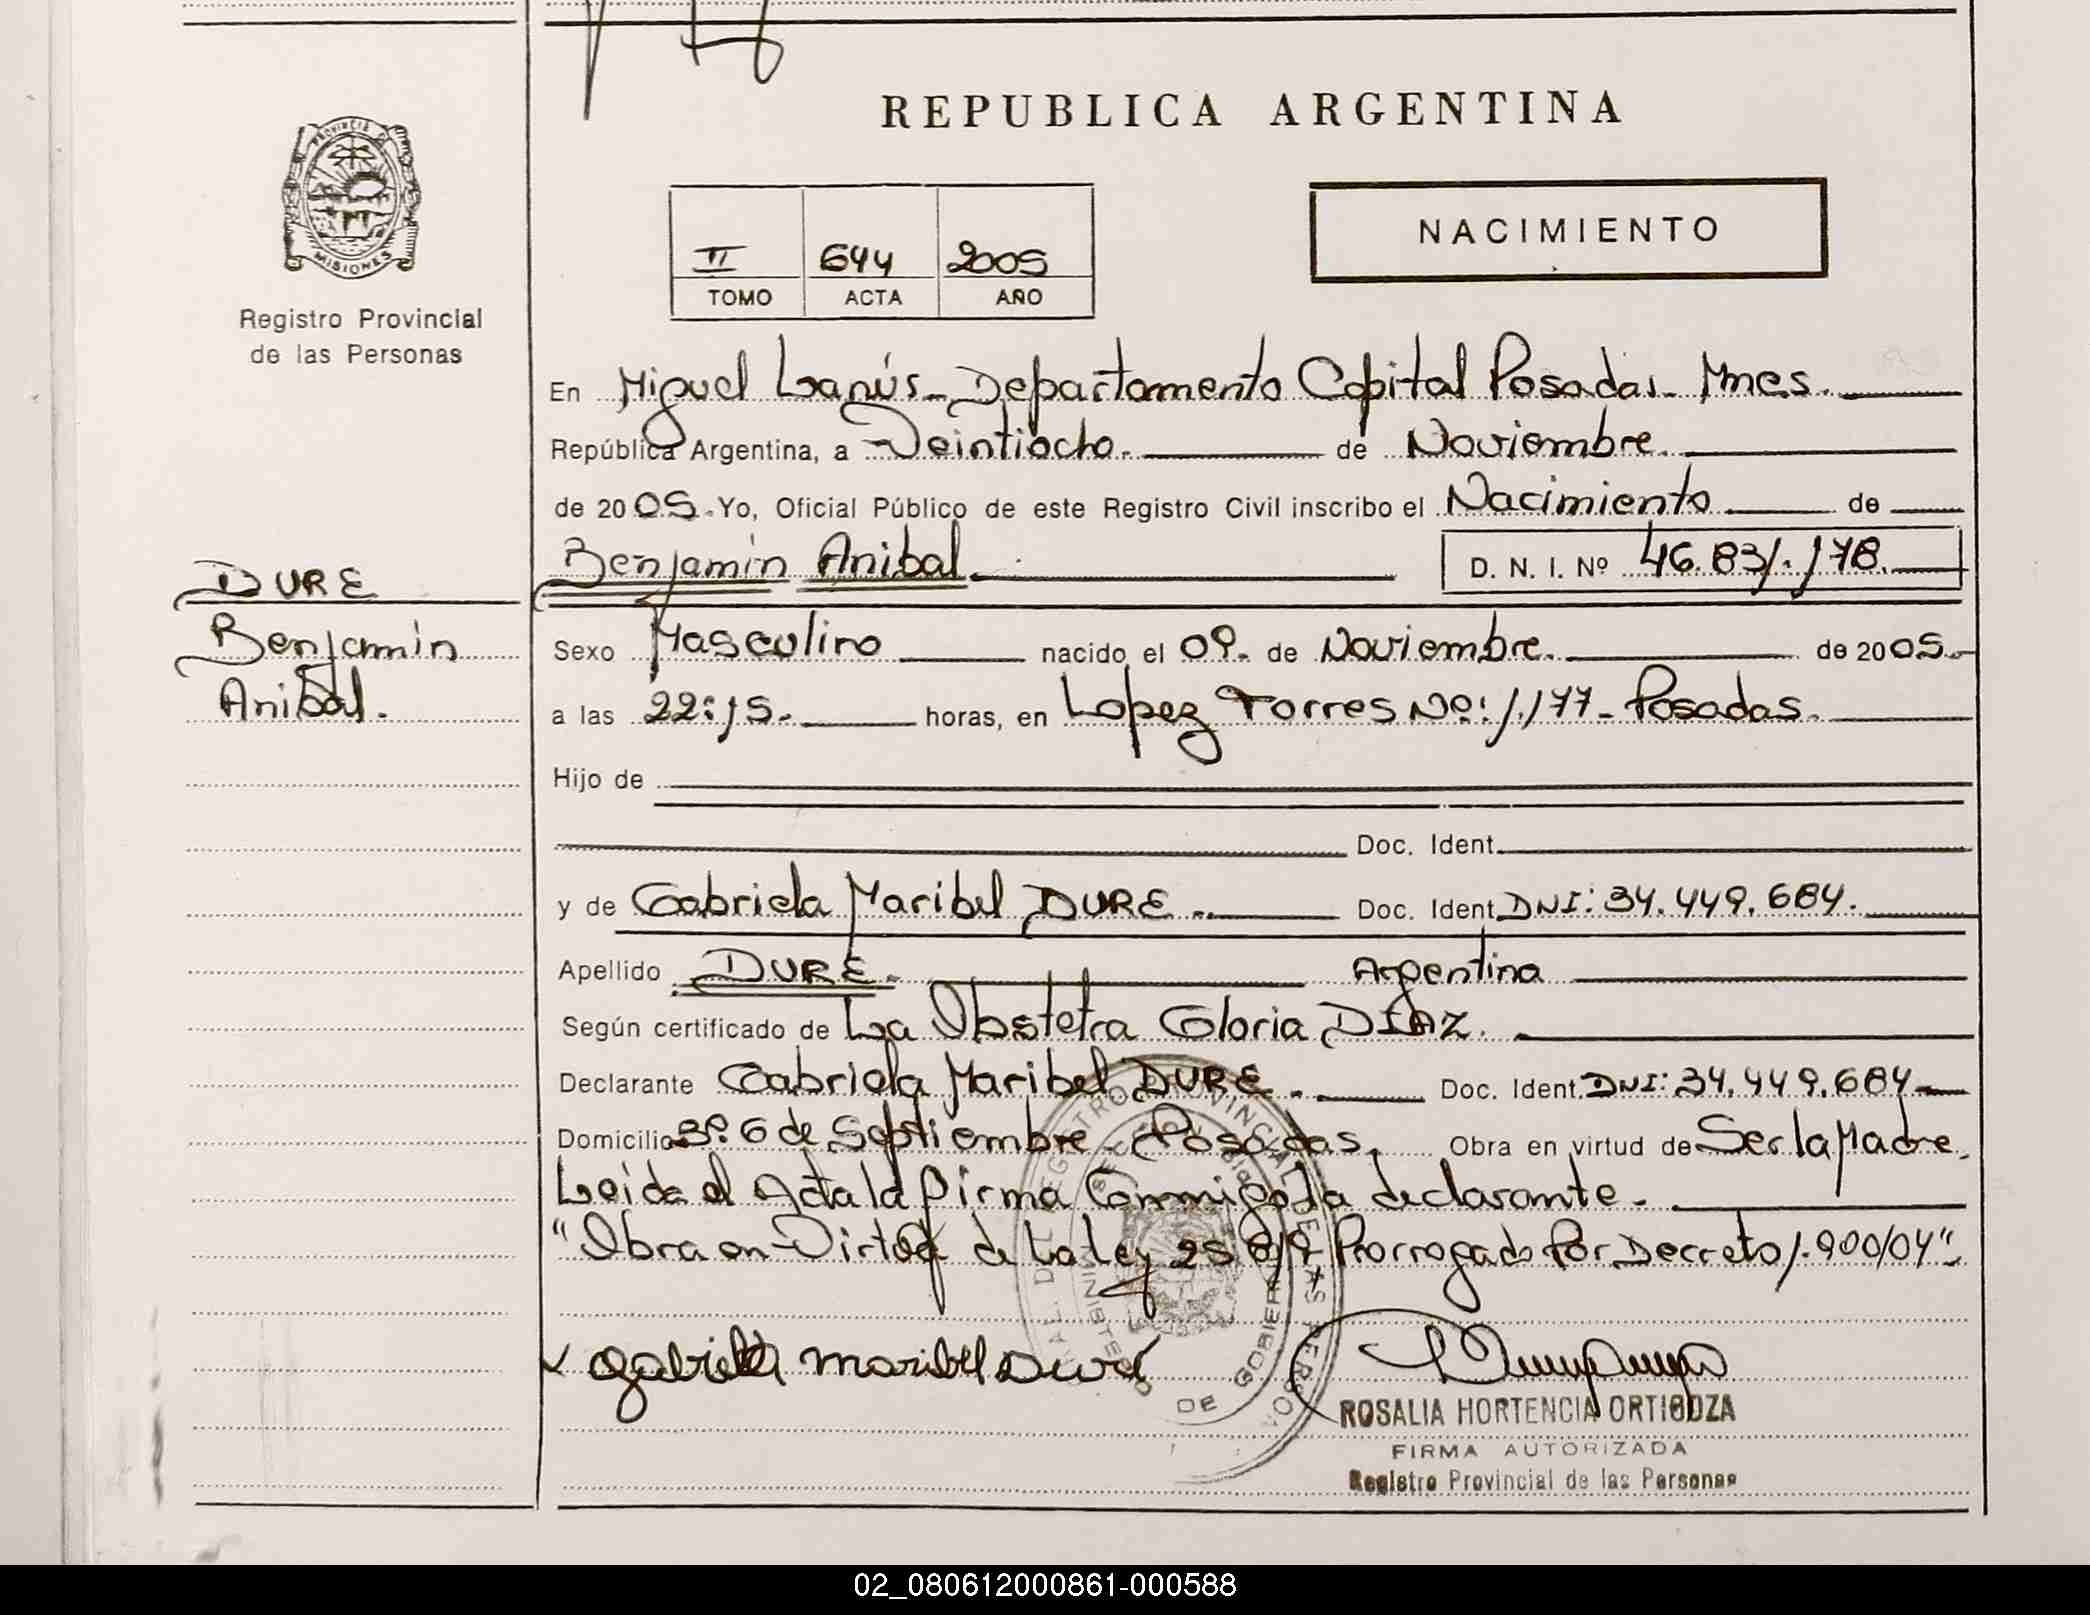 REPUBLICA ARGENTINA
PROVINCIA DE
MISIONES
Registro Provincial
de las Personas
NACIMIENTO
II 644 2005
TOMO ACTA AÑO
En Miguel Lanús - Departamento Capital Posadas - Mnes.
República Argentina, a Veintiocho. de Noviembre.
de 2005. Yo, Oficial Público de este Registro Civil inscribo el Nacimiento de
Benjamín Anibal. D. N. I. Nº 46.831.178.
DURE
Benjamín
Anibal.
Sexo Masculino nacido el 09. de Noviembre. de 2005.
a las 22:15. horas, en Lopez Torres Nº: 1.177 - Posadas.
Hijo de
Doc. Ident.
y de Gabriela Maribel DURE. Doc. Ident. DNI: 34.449.684.
Apellido DURE. Argentina
Según certificado de La Obstetra Gloria DIAZ.
Declarante Gabriela Maribel DURE. Doc. Ident. DNI: 34.449.684
Domicilio Bº. 6 de Septiembre - Posadas. Obra en virtud de Ser la Madre.
Leida el Acta la firma Conmigo la declarante.
"Obra en Virtud de La Ley 25 819 Prorrogado Por Decreto 1.900/04".
Gabriela maribel Duré
ROSALIA HORTENCIA ORTIGOZA
FIRMA AUTORIZADA
Registro Provincial de las Personas
02_080612000861-000588